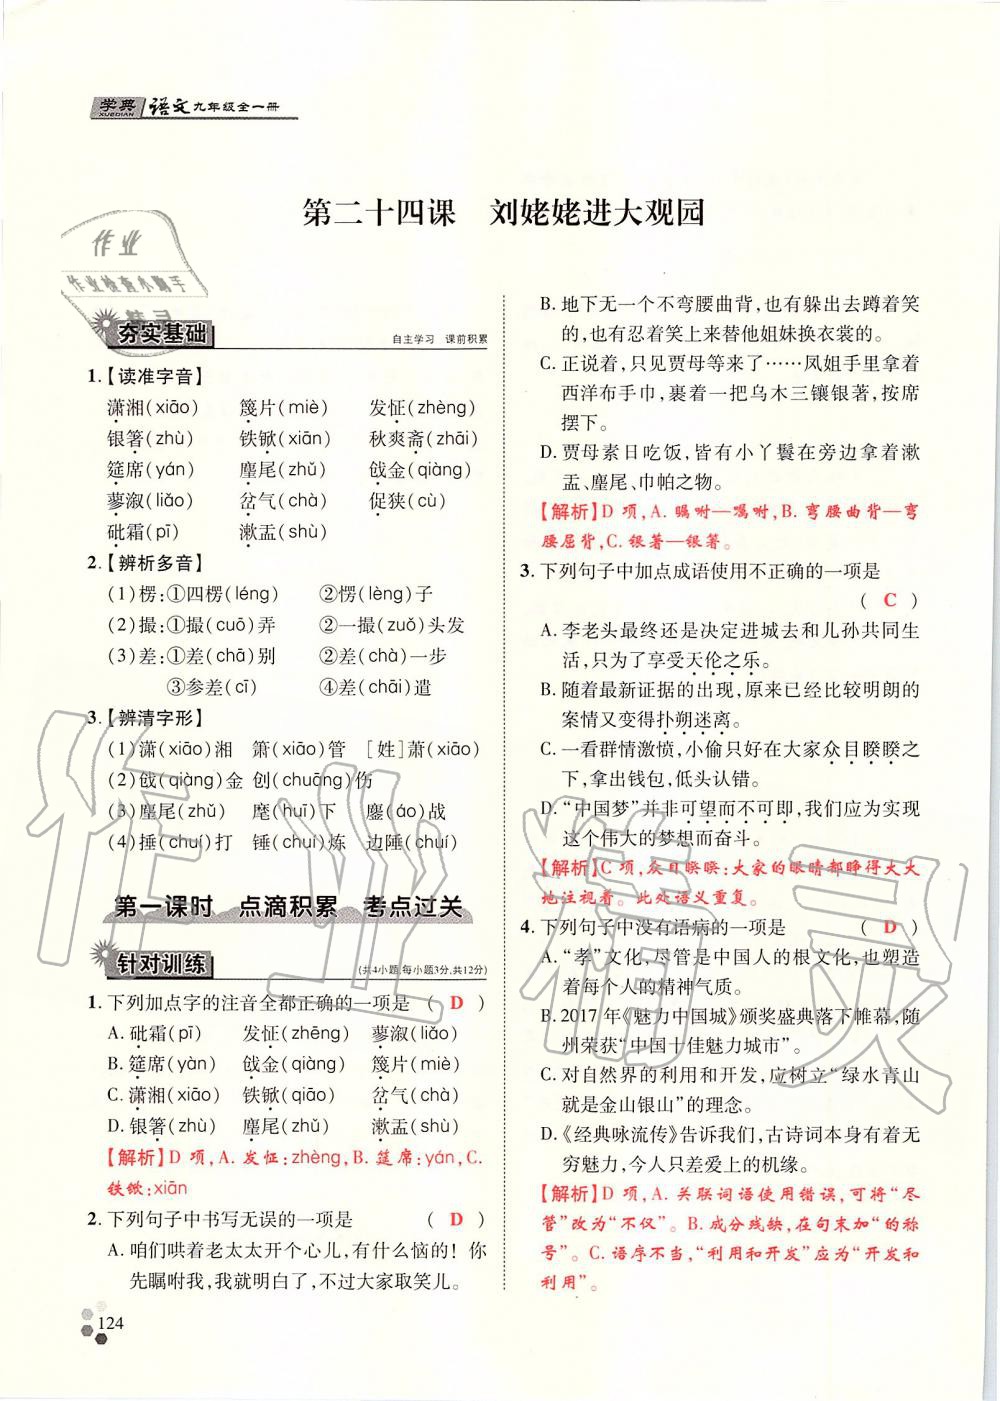 学典
XUEDIAN
语文九年级全一册
第二十四课 刘姥姥进大观园
作业
作业检查小助手
夯实基础
自主学习 课前积累
1.【读准字音】
潇湘(xiāo) 篾片(miè) 发怔(zhèng)
银箸(zhù) 铁锨(xiān) 秋爽斋(zhāi)
筵席(yán) 麈尾(zhǔ) 戗金(qiàng)
蓼溆(liǎo) 岔气(chà) 促狭(cù)
砒霜(pī) 漱盂(shù)
2.【辨析多音】
(1)楞:①四楞(léng) ②愣(lèng)子
(2)撮:①撮(cuō)弄 ②一撮(zuǒ)头发
(3)差:①差(chā)别 ②差(chà)一步
③参差(cī) ④差(chāi)遣
3.【辨清字形】
(1)潇(xiāo)湘 箫(xiāo)管 [姓]萧(xiāo)
(2)戗(qiàng)金 创(chuāng)伤
(3)麈尾(zhǔ) 麾(huī)下 鏖(áo)战
(4)捶(chuí)打 锤(chuí)炼 边陲(chuí)
第一课时 点滴积累 考点过关
针对训练
(共4小题,每小题3分,共12分)
1. 下列加点字的注音全都正确的一项是 ( D )
A. 砒霜(pī) 发怔(zhēng) 蓼溆(liǎo)
B. 筵席(yàn) 戗金(qiàng) 篾片(miè)
C. 潇湘(xiāo) 铁锨(qiān) 岔气(chà)
D. 银箸(zhù) 麈尾(zhǔ) 漱盂(shù)
【解析】D 项,A. 发怔:zhèng,B. 筵席:yán,C.
铁锨:xiān
2. 下列句子中书写无误的一项是 ( D )
A. 咱们哄着老太太开个心儿,有什么恼的！你
先瞩咐我,我就明白了,不过大家取笑儿。
B. 地下无一个不弯腰曲背,也有躲出去蹲着笑
的,也有忍着笑上来替他姐妹换衣裳的。
C. 正说着,只见贾母等来了……凤姐手里拿着
西洋布手巾,裹着一把乌木三镶银著,按席
摆下。
D. 贾母素日吃饭,皆有小丫鬟在旁边拿着漱
盂、麈尾、巾帕之物。
【解析】D 项,A. 瞩咐—嘱咐,B. 弯腰曲背—弯
腰屈背,C. 银著—银箸。
3. 下列句子中加点成语使用不正确的一项是
( C )
A. 李老头最终还是决定进城去和儿孙共同生
活,只为了享受天伦之乐。
B. 随着最新证据的出现,原来已经比较明朗的
案情又变得扑朔迷离。
C. 一看群情激愤,小偷只好在大家众目睽睽之
下,拿出钱包,低头认错。
D. “中国梦”并非可望而不可即,我们应为实现
这个伟大的梦想而奋斗。
【解析】C 项,众目睽睽:大家的眼睛都睁得大大
地注视着。此处语义重复。
4. 下列句子中没有语病的一项是 ( D )
A. “孝”文化,尽管是中国人的根文化,也塑造
着每个人的精神气质。
B. 2017 年《魅力中国城》颁奖盛典落下帷幕,随
州荣获“中国十佳魅力城市”。
C. 对自然界的利用和开发,应树立“绿水青山
就是金山银山”的理念。
D.《经典咏流传》告诉我们,古诗词本身有着无
穷魅力,今人只差爱上的机缘。
【解析】D 项,A. 关联词语使用错误,可将“尽
管”改为“不仅”。B. 成分残缺,在句末加“的称
号”。C. 语序不当,“利用和开发”应为“开发和
利用”。
124
作业精灵